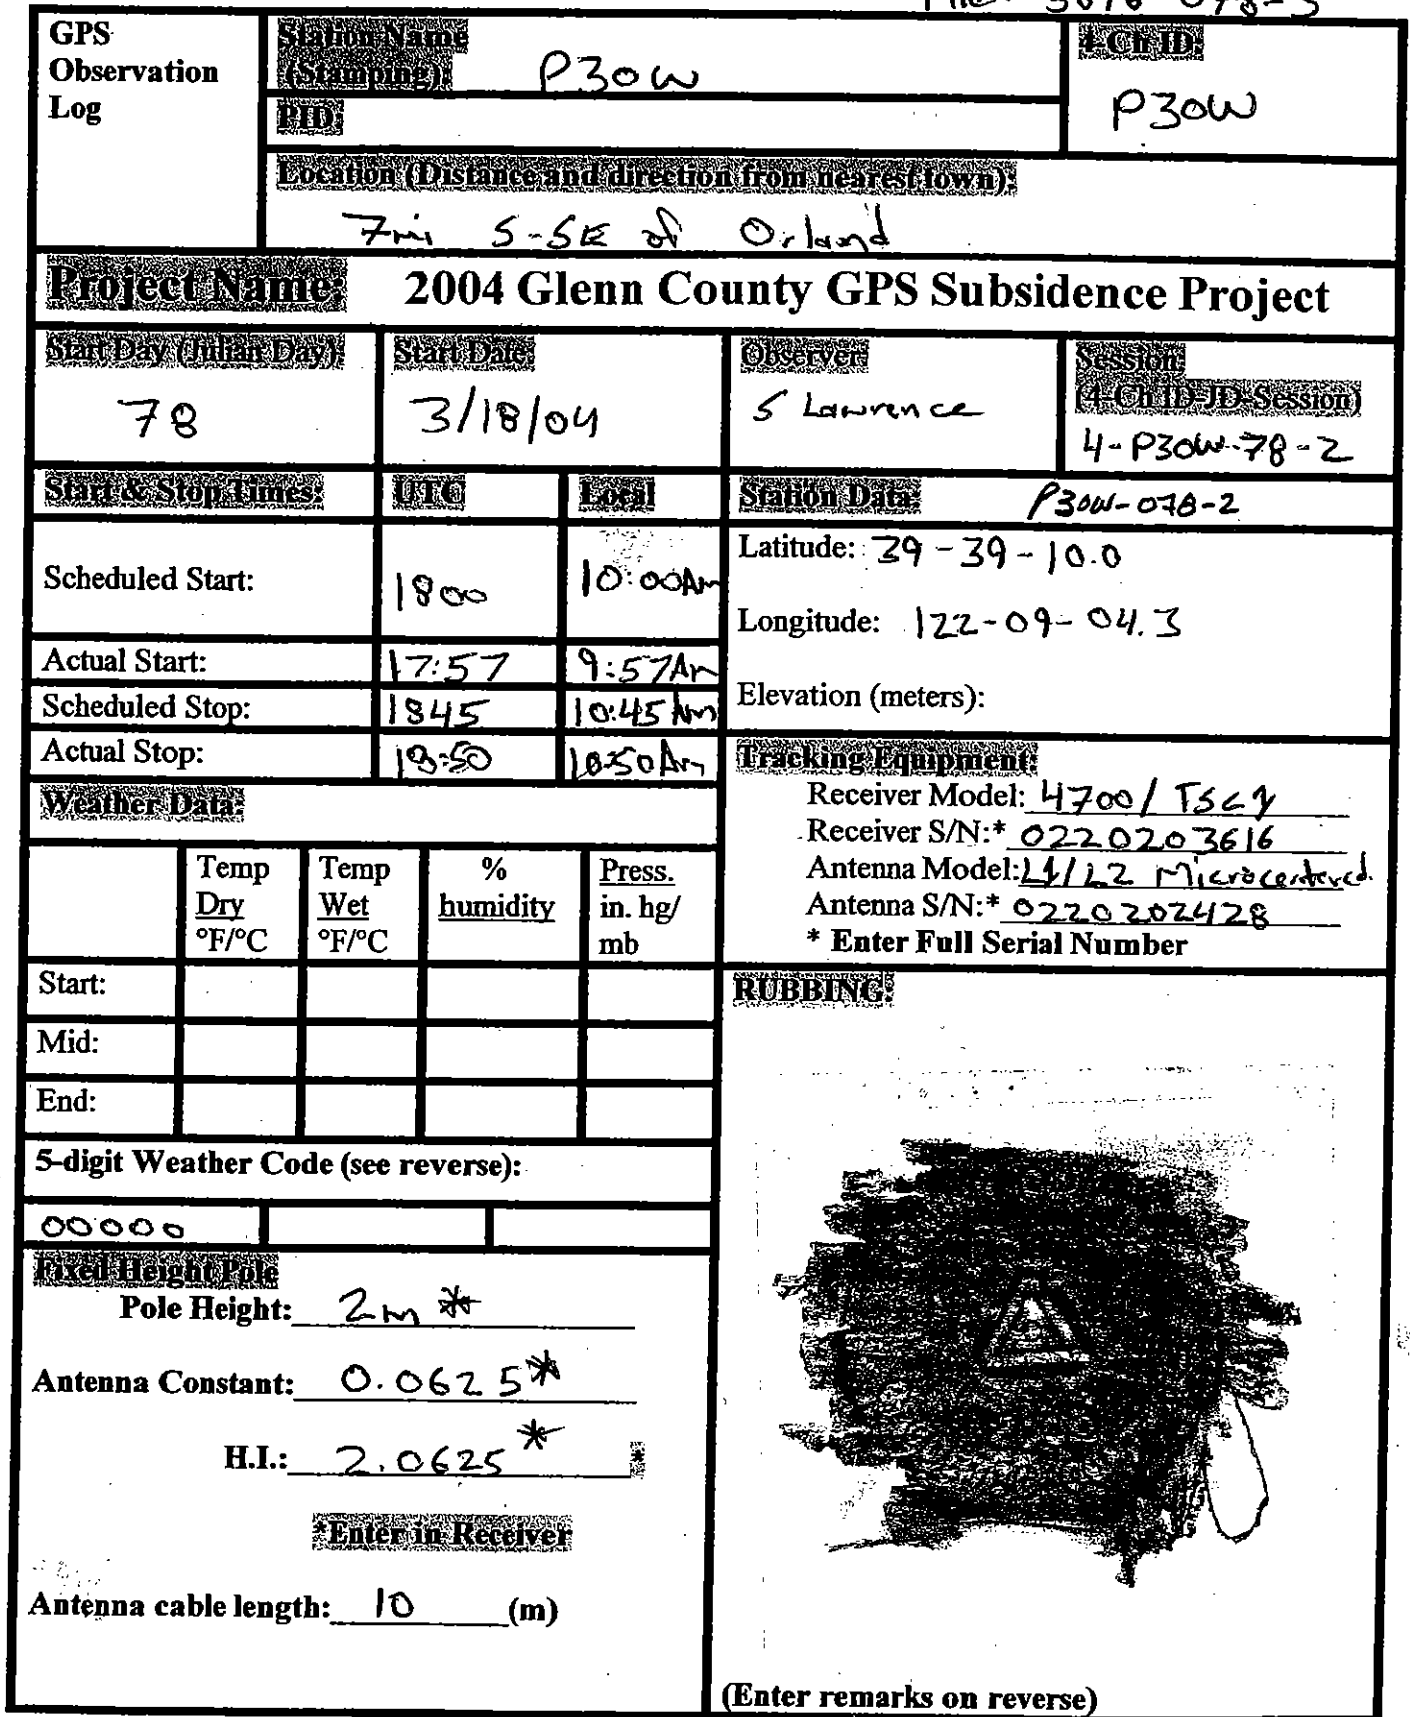 GPS
Observation
Log
Station Name
(Stamping): P30W
4-Ch ID:
P30W
PID:
Location (Distance and direction from nearest town):
7mi S-SE of Orland
Project Name: 2004 Glenn County GPS Subsidence Project
Start Day (Julian Day):
78
Start Date:
3/18/04
Observer:
S Lawrence
Session:
(4-Ch ID-JD-Session)
4-P30W-78-2
Start & Stop Times: UTC Local
Scheduled Start: 1800 10:00Am
Actual Start: 17:57 9:57Am
Scheduled Stop: 1845 10:45Am
Actual Stop: 18:50 10:50Am
Station Data: P30W-078-2
Latitude: 39-39-10.0
Longitude: 122-09-04.3
Elevation (meters):
Tracking Equipment:
Receiver Model: 4700/
Receiver S/N:* 0220203616
Antenna Model: L1/L2 Microcentered
Antenna S/N:* 0220202428
* Enter Full Serial Number
Weather Data:
Temp
Dry
°F/°C
Temp
Wet
°F/°C
%
humidity
Press.
in. hg/
mb
Start:
Mid:
End:
5-digit Weather Code (see reverse):
00000
Fixed Height Pole
Pole Height: 2m *
Antenna Constant: 0.0625*
H.I.: 2.0625* *
*Enter in Receiver
Antenna cable length: 10 (m)
RUBBING:
(Enter remarks on reverse)